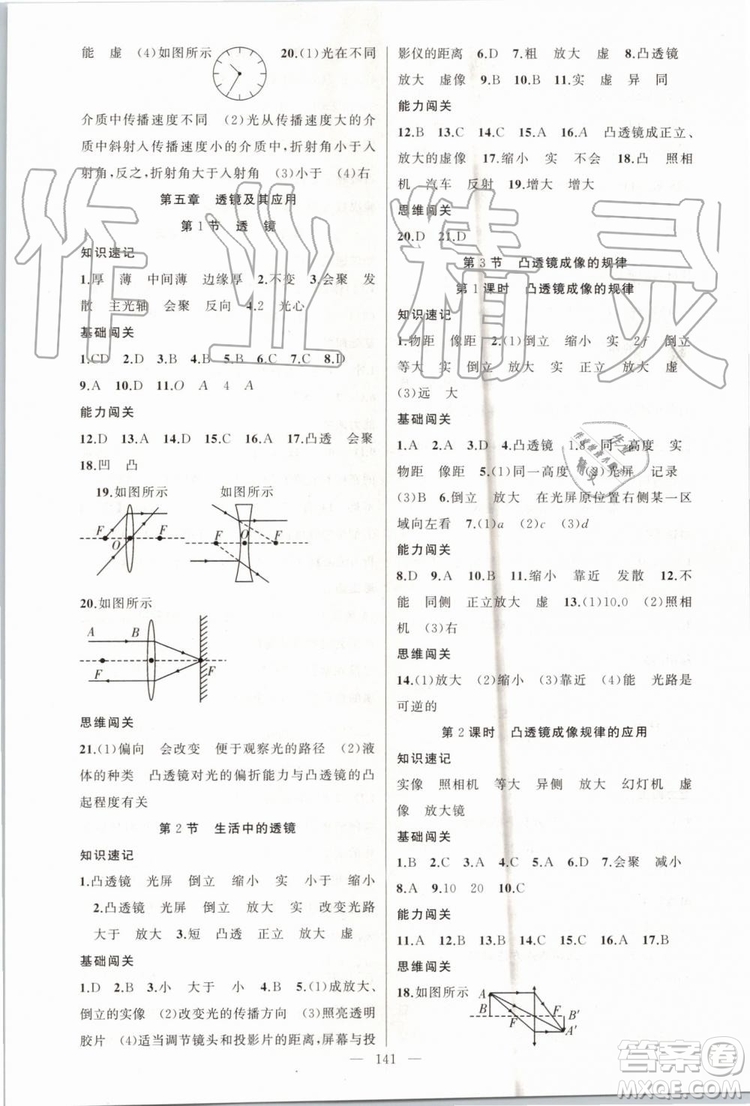 能　虚　(4)如图所示　20.(1)光在不同
介质中传播速度不同　(2)光从传播速度大的介
质中斜射入传播速度小的介质中,折射角小于入
射角,反之,折射角大于入射角　(3)小　(4)右
第五章　透镜及其应用
第1节　透　镜
知识速记
1.厚　薄　中间薄　边缘厚　2.不变　3.会聚　发
散　主光轴　会聚　反向　4.2　光心
基础闯关
1.CD　2.D　3.B　4.B　5.B　6.B　7.C　8.D
9.A　10.D　11.O　A　4　A
能力闯关
12.D　13.D　14.A　15.C　16.A　17.凸透　会聚
18.凹　凸
19.如图所示
F　O　F　F　O　F
20.如图所示
A　B
F　F
思维闯关
21.(1)偏向　会改变　便于观察光的路径　(2)液
体的种类　凸透镜对光的偏折能力与凸透镜的凸
起程度有关
第2节　生活中的透镜
知识速记
1.凸透镜　光屏　倒立　缩小　实　小于　缩小
2.凸透镜　光屏　倒立　放大　实　改变光路
放大　3.短　凸透　正立　放大　虚
基础闯关
1.D　2.D　3.小　大于　小　5.(1)成放大、
倒立的实像　(2)改变光的传播方向　(3)照亮透明
胶片　(4)适当调节镜头和投影片的距离,屏幕与投
影仪的距离　6.D　7.粗　放大　虚像　8.凸透镜
放大　虚像　9.B　10.B　11.实　虚　异　同
能力闯关
12.B　13.C　14.C　15.A　16.凸透镜成正立、
放大的虚像　17.缩小　实　不会　18.凸　照相
机　汽车　反射　19.增大　增大
思维闯关
20.D　21.D
第3节　凸透镜成像的规律
第1课时　凸透镜成像的规律
知识速记
1.物距　像距　2.(1)倒立　缩小　实　2f　倒立
等大　实　倒立　放大　实　正立　放大　虚
(3)远　大
基础闯关
1.A　2.A　3.D　4.凸透镜　1.8　同一高度　实
物距　像距　5.(1)同一高度　(2)光屏　记录
(3)B　6.倒立　放大　在光屏原位置右侧某一区
域向左看　7.(1)a　(2)c　(3)d
能力闯关
8.D　9.C　10.D　11.缩小　靠近　发散　12.不
能　同侧　正立放大　虚　13.(1)10.0　(2)照相
机　(3)右
思维闯关
14.(1)放大　(2)缩小　(3)靠近　(4)能　光路是
可逆的
第2课时　凸透镜成像规律的应用
知识速记
实像　照相机　等大　异侧　放大　幻灯机　虚
像　放大镜
基础闯关
1.B　2.C　3.B　4.D　5.B　6.D　7.会聚　减小
8.A　9.10　20　10.C
能力闯关
11.A　12.D　13.B　14.B　15.C　16.A　17.B
思维闯关
18.如图所示
A　B　F　F　B′　A′
141
作业精灵
答案圈
MXQE.COM